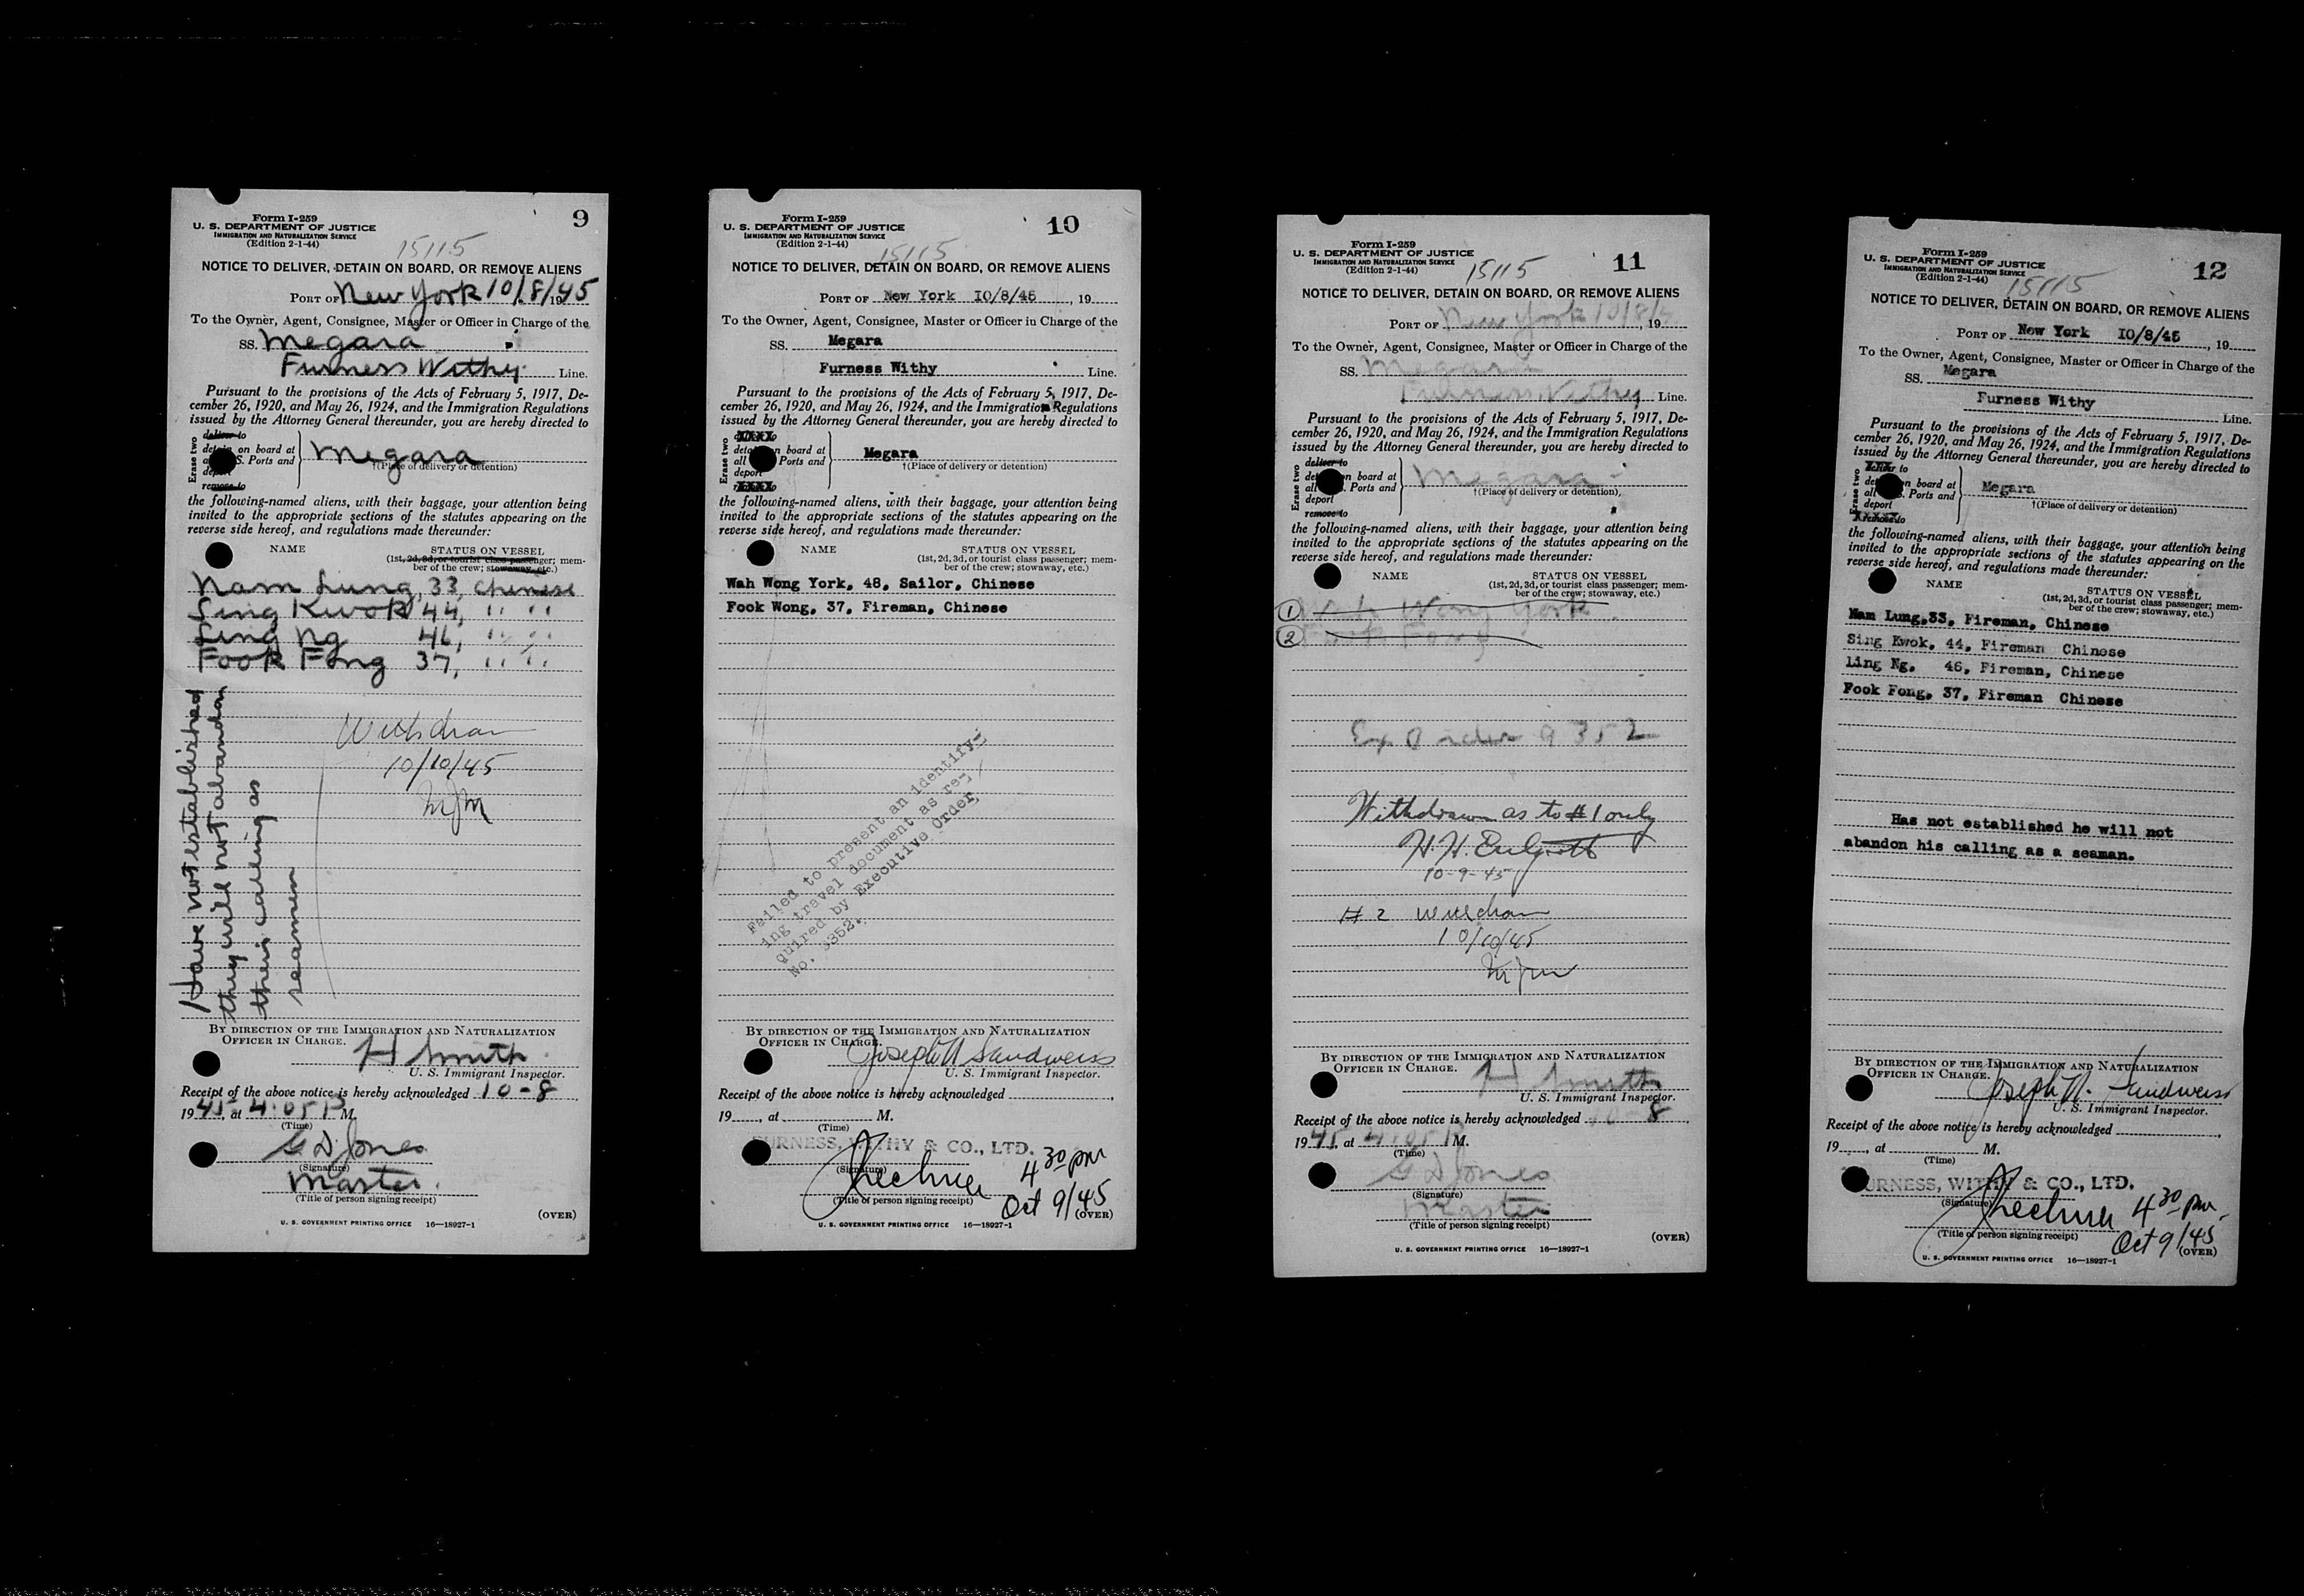 Form I-259
U. S. DEPARTMENT OF JUSTICE
IMMIGRATION AND NATURALIZATION SERVICE
(Edition 2-1-44)
9
15115
NOTICE TO DELIVER, DETAIN ON BOARD, OR REMOVE ALIENS
PORT OF New York 10/8/1945
To the Owner, Agent, Consignee, Master or Officer in Charge of the
SS. Megara
Furness Withy Line.
Pursuant to the provisions of the Acts of February 5, 1917, De-
cember 26, 1920, and May 26, 1924, and the Immigration Regulations
issued by the Attorney General thereunder, you are hereby directed to
Erase two
deliver to
detain on board at
S. Ports and
remove to
Megara
†(Place of delivery or detention)
the following-named aliens, with their baggage, your attention being
invited to the appropriate sections of the statutes appearing on the
reverse side hereof, and regulations made thereunder:
NAME STATUS ON VESSEL
(1st, 2d, 3d, or tourist class passenger; mem-
ber of the crew; stowaway, etc.)
Nam Lung, 33, Chinese
Sing Kwok 44, " "
Ling Ng 46, " "
Fook Fong 37, " "
Have not established
they will not abandon
their calling as
seamen
Withdrawn
10/10/45
BY DIRECTION OF THE IMMIGRATION AND NATURALIZATION
OFFICER IN CHARGE.
H Smith
U. S. Immigrant Inspector.
Receipt of the above notice is hereby acknowledged 10-8
1945, at 4:05 P M.
(Time)
G D Jones
(Signature)
Master.
(Title of person signing receipt)
(OVER)
U. S. GOVERNMENT PRINTING OFFICE 16—18927-1
Form I-259
U. S. DEPARTMENT OF JUSTICE
IMMIGRATION AND NATURALIZATION SERVICE
(Edition 2-1-44)
10
15115
NOTICE TO DELIVER, DETAIN ON BOARD, OR REMOVE ALIENS
PORT OF New York I0/8/45, 19
To the Owner, Agent, Consignee, Master or Officer in Charge of the
SS. Megara
Furness Withy Line.
Pursuant to the provisions of the Acts of February 5, 1917, De-
cember 26, 1920, and May 26, 1924, and the Immigration Regulations
issued by the Attorney General thereunder, you are hereby directed to
Erase two
on board at
all Ports and
deport
Megara
†(Place of delivery or detention)
the following-named aliens, with their baggage, your attention being
invited to the appropriate sections of the statutes appearing on the
reverse side hereof, and regulations made thereunder:
NAME STATUS ON VESSEL
(1st, 2d, 3d, or tourist class passenger; mem-
ber of the crew; stowaway, etc.)
Wah Wong York, 48, Sailor, Chinese
Fook Wong, 37, Fireman, Chinese
Failed to present an identify-
ing travel document as re-
quired by Executive Order
No. 9352.
BY DIRECTION OF THE IMMIGRATION AND NATURALIZATION
OFFICER IN CHARGE.
Joseph N Sandweiss
U. S. Immigrant Inspector.
Receipt of the above notice is hereby acknowledged
19, at M.
(Time)
FURNESS, WITHY & CO., LTD.
(Signature)
4 30 pm
Oct 9/45
(Title of person signing receipt)
(OVER)
U. S. GOVERNMENT PRINTING OFFICE 16—18927-1
Form I-259
U. S. DEPARTMENT OF JUSTICE
IMMIGRATION AND NATURALIZATION SERVICE
(Edition 2-1-44)
11
15115
NOTICE TO DELIVER, DETAIN ON BOARD, OR REMOVE ALIENS
PORT OF New York 10/8/4, 19
To the Owner, Agent, Consignee, Master or Officer in Charge of the
SS. Megara
Furness Withy Line.
Pursuant to the provisions of the Acts of February 5, 1917, De-
cember 26, 1920, and May 26, 1924, and the Immigration Regulations
issued by the Attorney General thereunder, you are hereby directed to
Erase two
deliver to
on board at
Ports and
deport
remove to
Megara
†(Place of delivery or detention)
the following-named aliens, with their baggage, your attention being
invited to the appropriate sections of the statutes appearing on the
reverse side hereof, and regulations made thereunder:
NAME STATUS ON VESSEL
(1st, 2d, 3d, or tourist class passenger; mem-
ber of the crew; stowaway, etc.)
1 Wah Wong York
2 Fong
Ex Order 9352
Withdrawn as to #1 only
10-9-45
#2 Withdrawn
10/10/45
BY DIRECTION OF THE IMMIGRATION AND NATURALIZATION
OFFICER IN CHARGE.
H Smith
U. S. Immigrant Inspector.
Receipt of the above notice is hereby acknowledged 10-8
1945, at 4:05 P M.
(Time)
G D Jones
(Signature)
Master
(Title of person signing receipt)
(OVER)
U. S. GOVERNMENT PRINTING OFFICE 16—18927-1
Form I-259
U. S. DEPARTMENT OF JUSTICE
IMMIGRATION AND NATURALIZATION SERVICE
(Edition 2-1-44)
12
15115
NOTICE TO DELIVER, DETAIN ON BOARD, OR REMOVE ALIENS
PORT OF New York I0/8/45, 19
To the Owner, Agent, Consignee, Master or Officer in Charge of the
SS. Megara
Furness Withy Line.
Pursuant to the provisions of the Acts of February 5, 1917, De-
cember 26, 1920, and May 26, 1924, and the Immigration Regulations
issued by the Attorney General thereunder, you are hereby directed to
Erase two
on board at
Ports and
deport
remove to
Megara
†(Place of delivery or detention)
the following-named aliens, with their baggage, your attention being
invited to the appropriate sections of the statutes appearing on the
reverse side hereof, and regulations made thereunder:
NAME STATUS ON VESSEL
(1st, 2d, 3d, or tourist class passenger; mem-
ber of the crew; stowaway, etc.)
Nam Lung,33, Fireman, Chinese
Sing Kwok, 44, Fireman Chinese
ling Ng. 46, Fireman, Chinese
Fook Fong, 37, Fireman Chinese
Has not established he will not
abandon his calling as a seaman.
BY DIRECTION OF THE IMMIGRATION AND NATURALIZATION
OFFICER IN CHARGE.
Joseph N. Sandweiss
U. S. Immigrant Inspector.
Receipt of the above notice is hereby acknowledged
19, at M.
(Time)
FURNESS, WITHY & CO., LTD.
(Signature)
4 30 pm
Oct 9/45
(Title of person signing receipt)
(OVER)
U. S. GOVERNMENT PRINTING OFFICE 16—18927-1